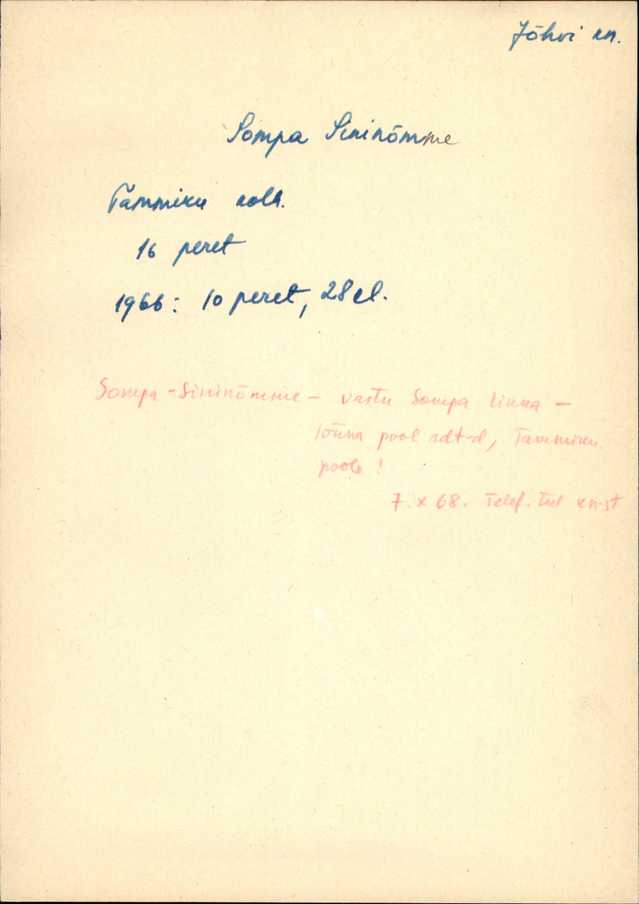 Jõhvi kn.
Sompa Sininõmme
Tammiku kolh.
16 peret
1966: 10 peret, 28 el.
Sompa-Sininõmme - vastu Sompa linna -
lõuna pool rdt-d, Tammiku
poole!
7. X 68. Telef. tel kn-st